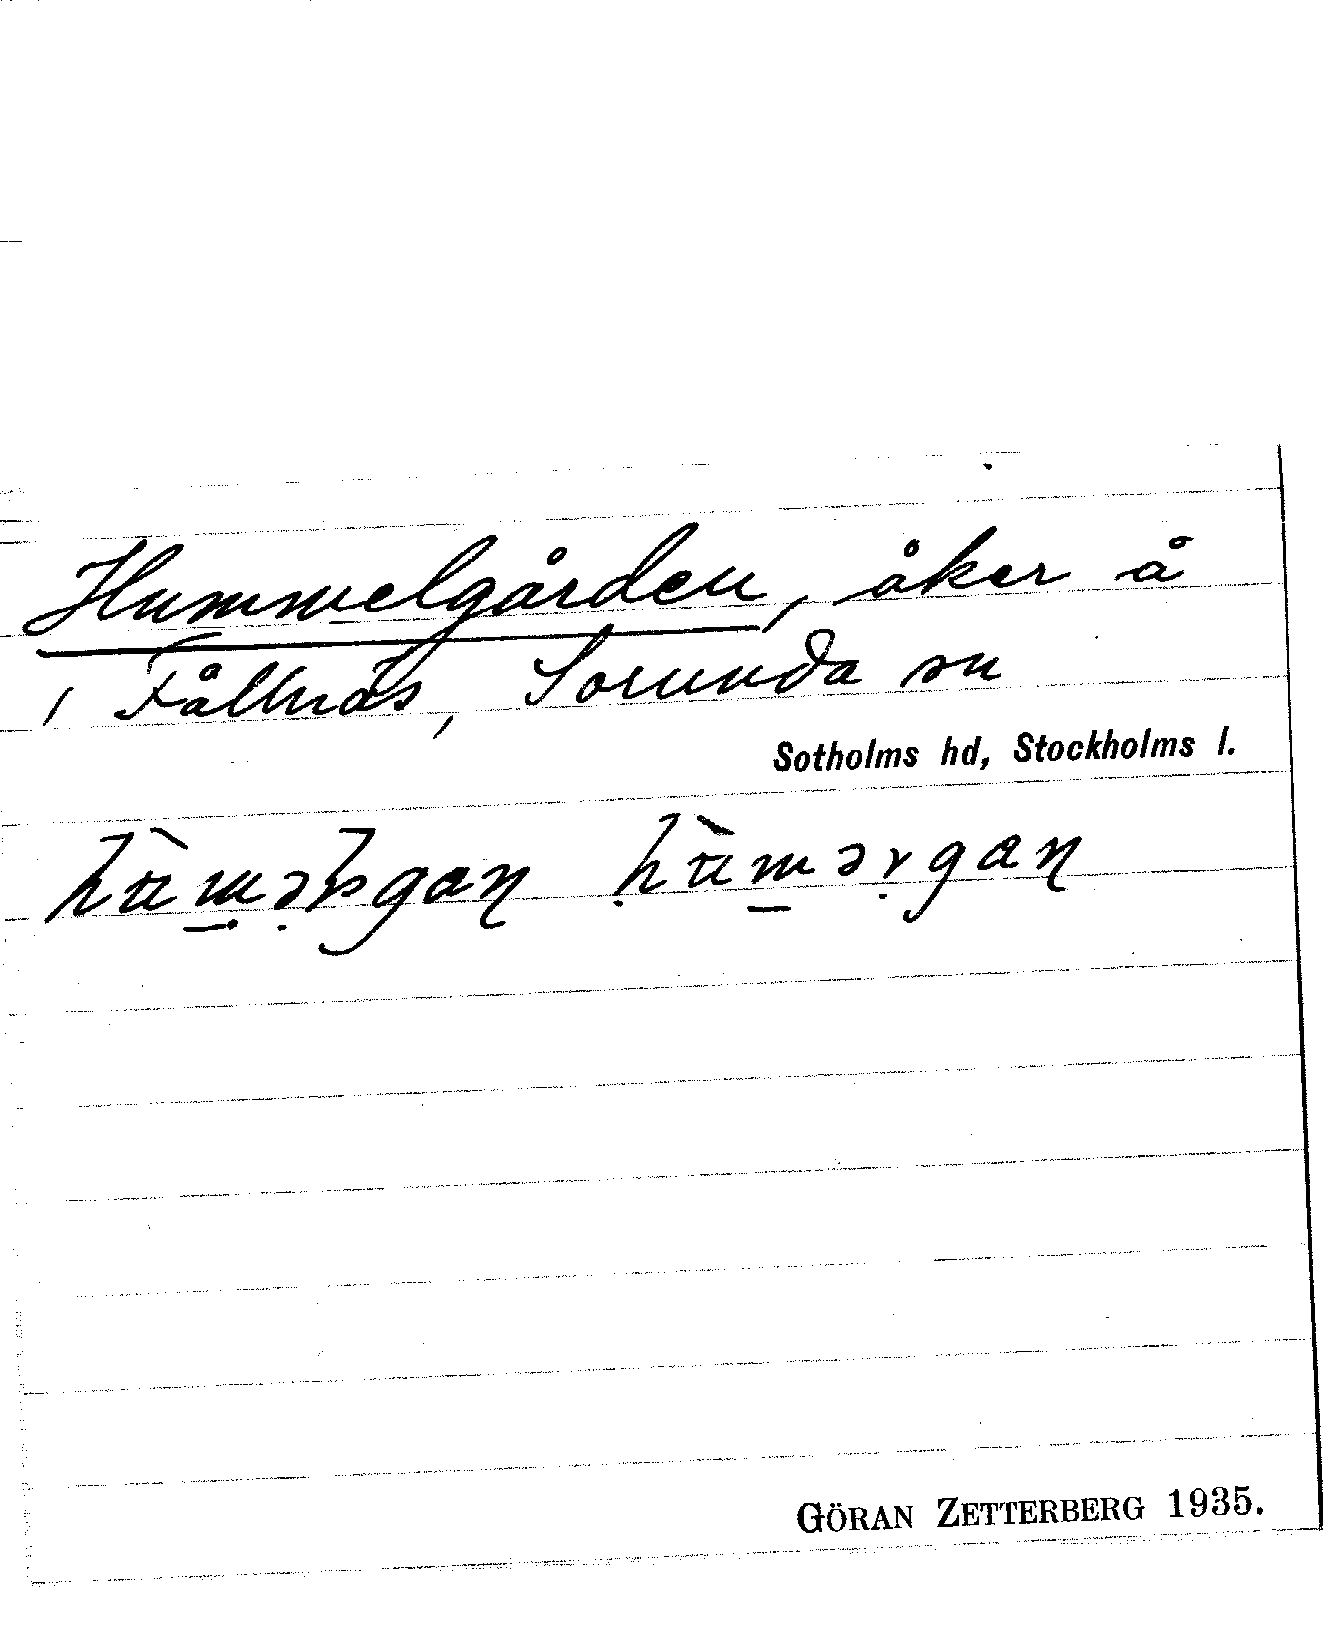 Hummelgården, åker å
Fållnäs, Sorunda sn
Sotholms hd, Stockholms l.
GÖRAN ZETTERBERG 1935.